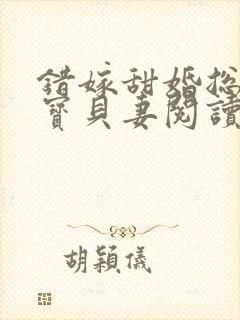 錯嫁甜婚總
寶貝妻閱讀
胡穎儀